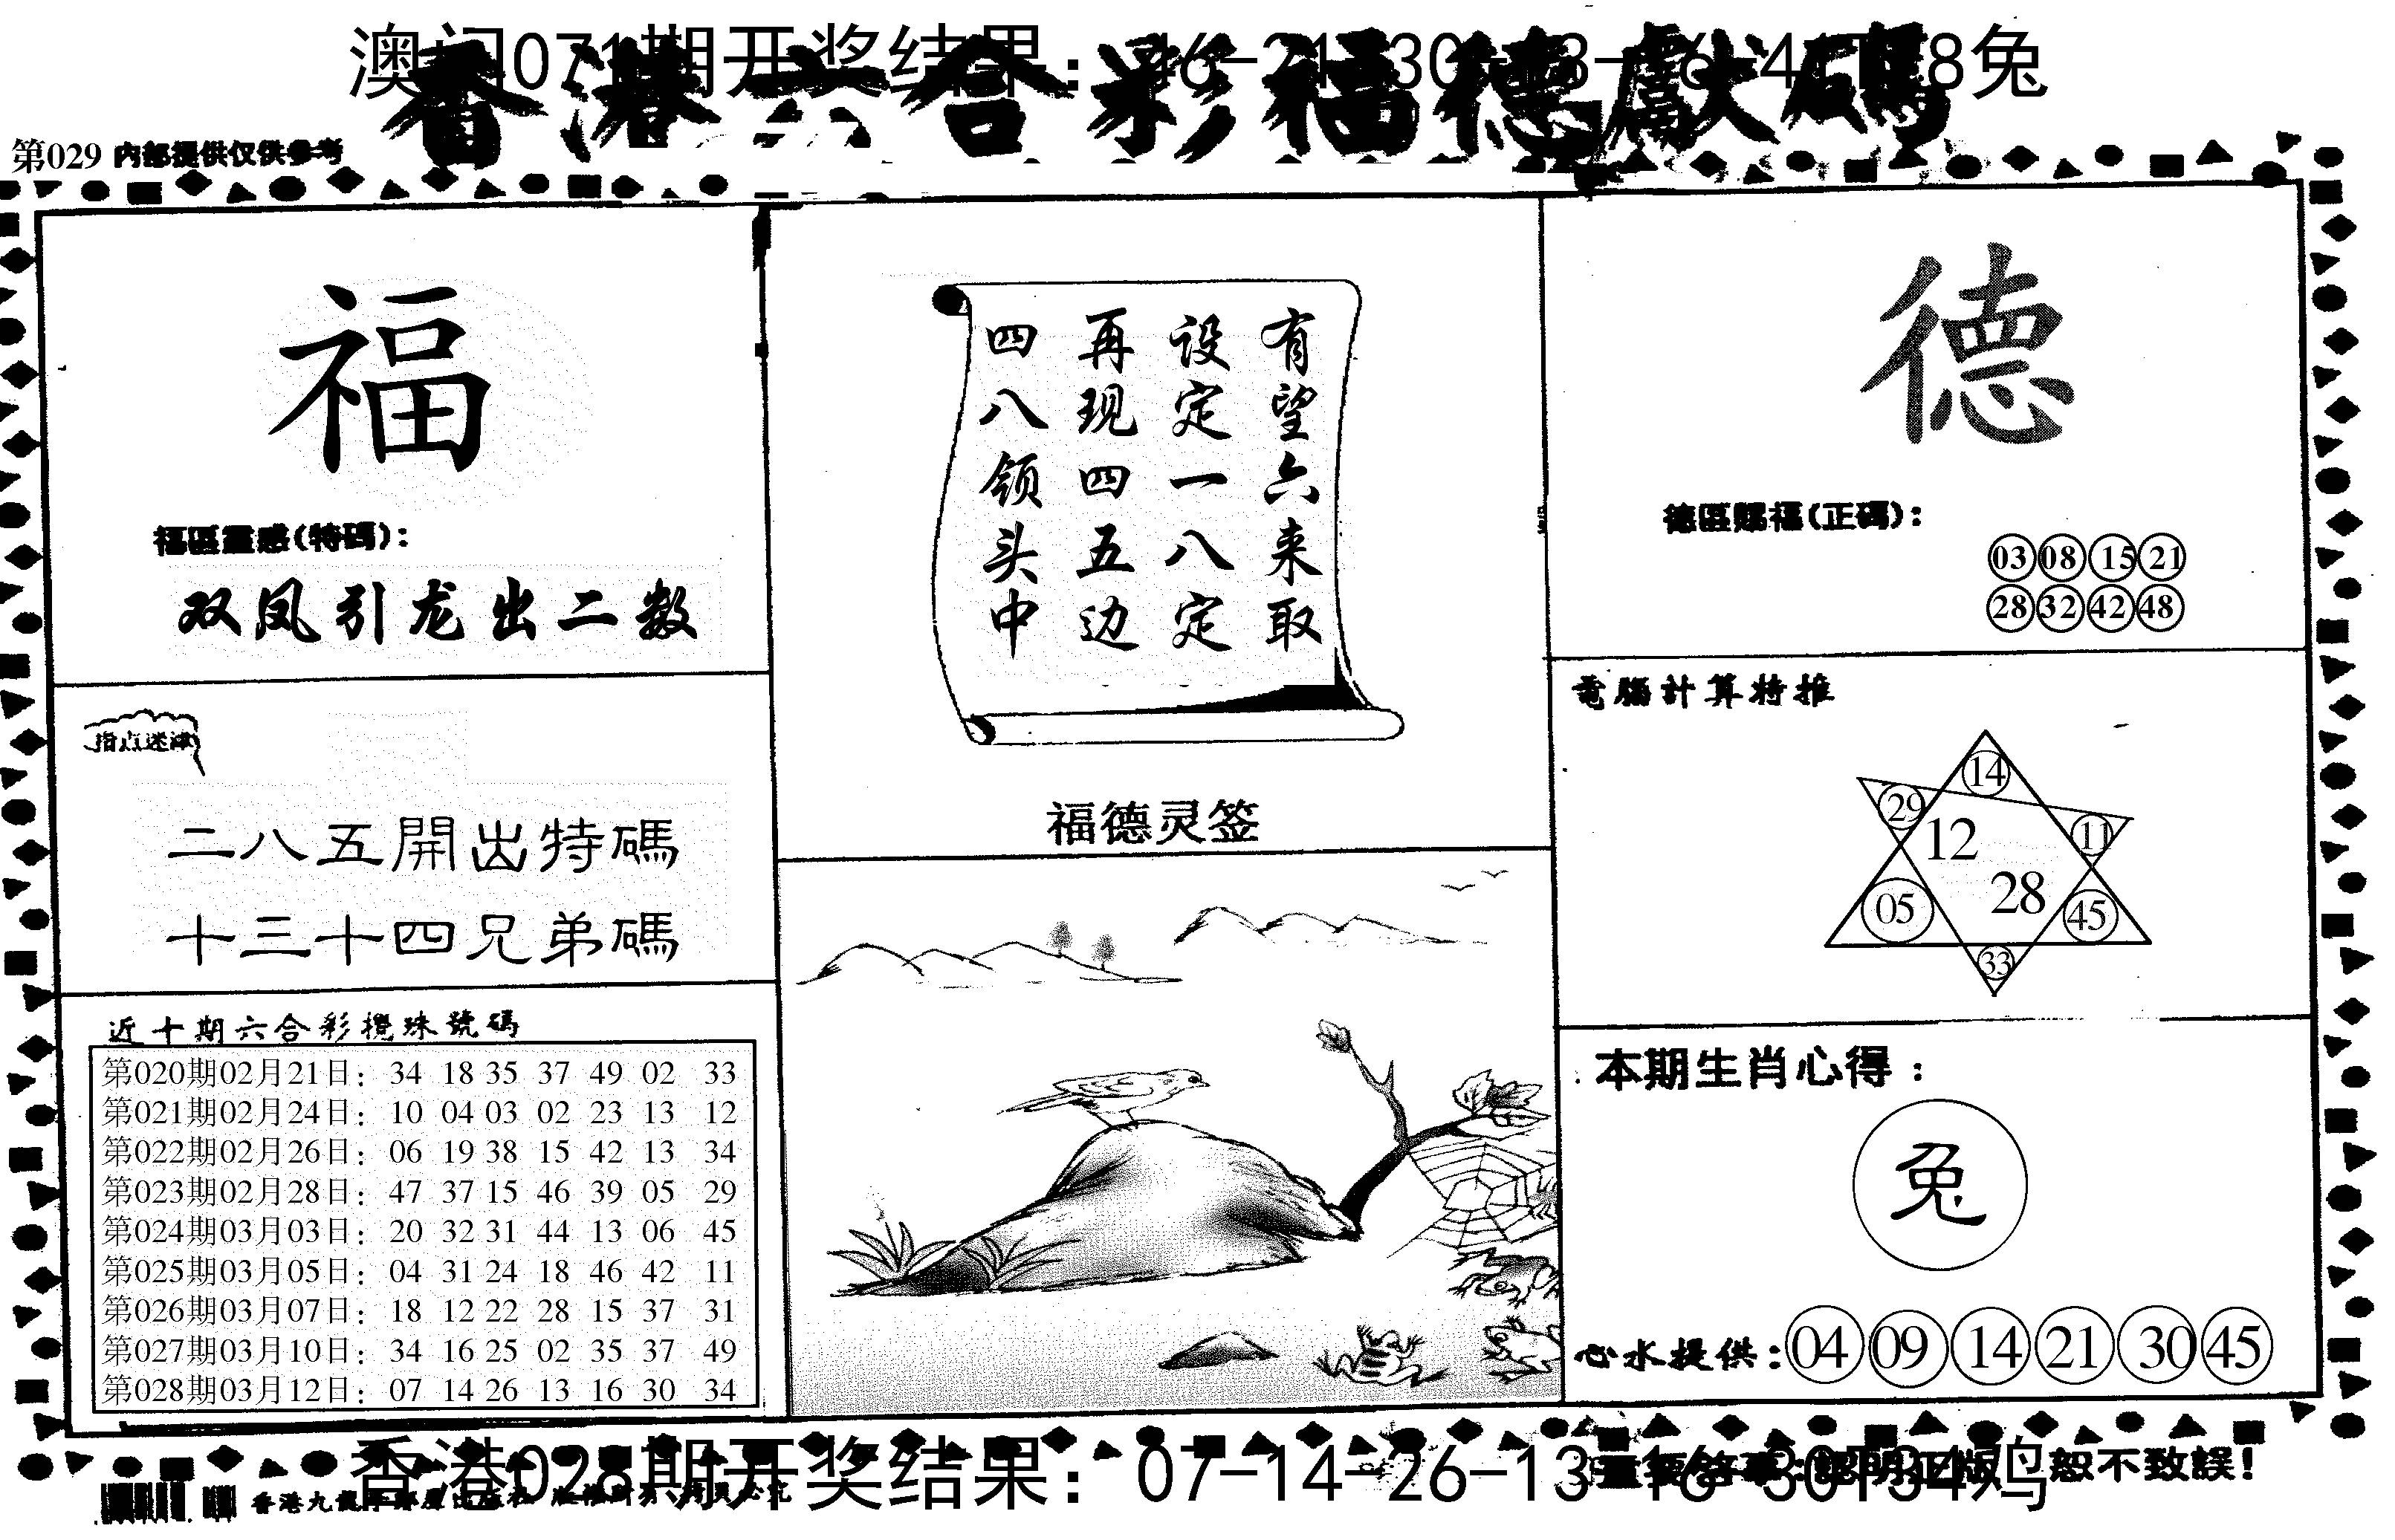 香港六合彩福德獻碼
第029 内部提供仅供参考
福
福區靈感(特碼)：
双凤引龙出二数
指点迷津
二八五開出特碼
十三十四兄弟碼
近十期六合彩攪珠號碼
第020期02月21日： 34 18 35 37 49 02 33
第021期02月24日： 10 04 03 02 23 13 12
第022期02月26日： 06 19 38 15 42 13 34
第023期02月28日： 47 37 15 46 39 05 29
第024期03月03日： 20 32 31 44 13 06 45
第025期03月05日： 04 31 24 18 46 42 11
第026期03月07日： 18 12 22 28 15 37 31
第027期03月10日： 34 16 25 02 35 37 49
第028期03月12日： 07 14 26 13 16 30 34
有望六来取
设定一八定
再现四五边
四八领头中
福德灵签
德
德區賜福(正碼)：
03 08 15 21
28 32 42 48
電腦計算特推
14
29
12
11
28
05
45
33
本期生肖心得：
兔
心水提供：04 09 14 21 30 45
香港028期开奖结果：07-14-26-13-16-30T34鸡
恕不致誤！